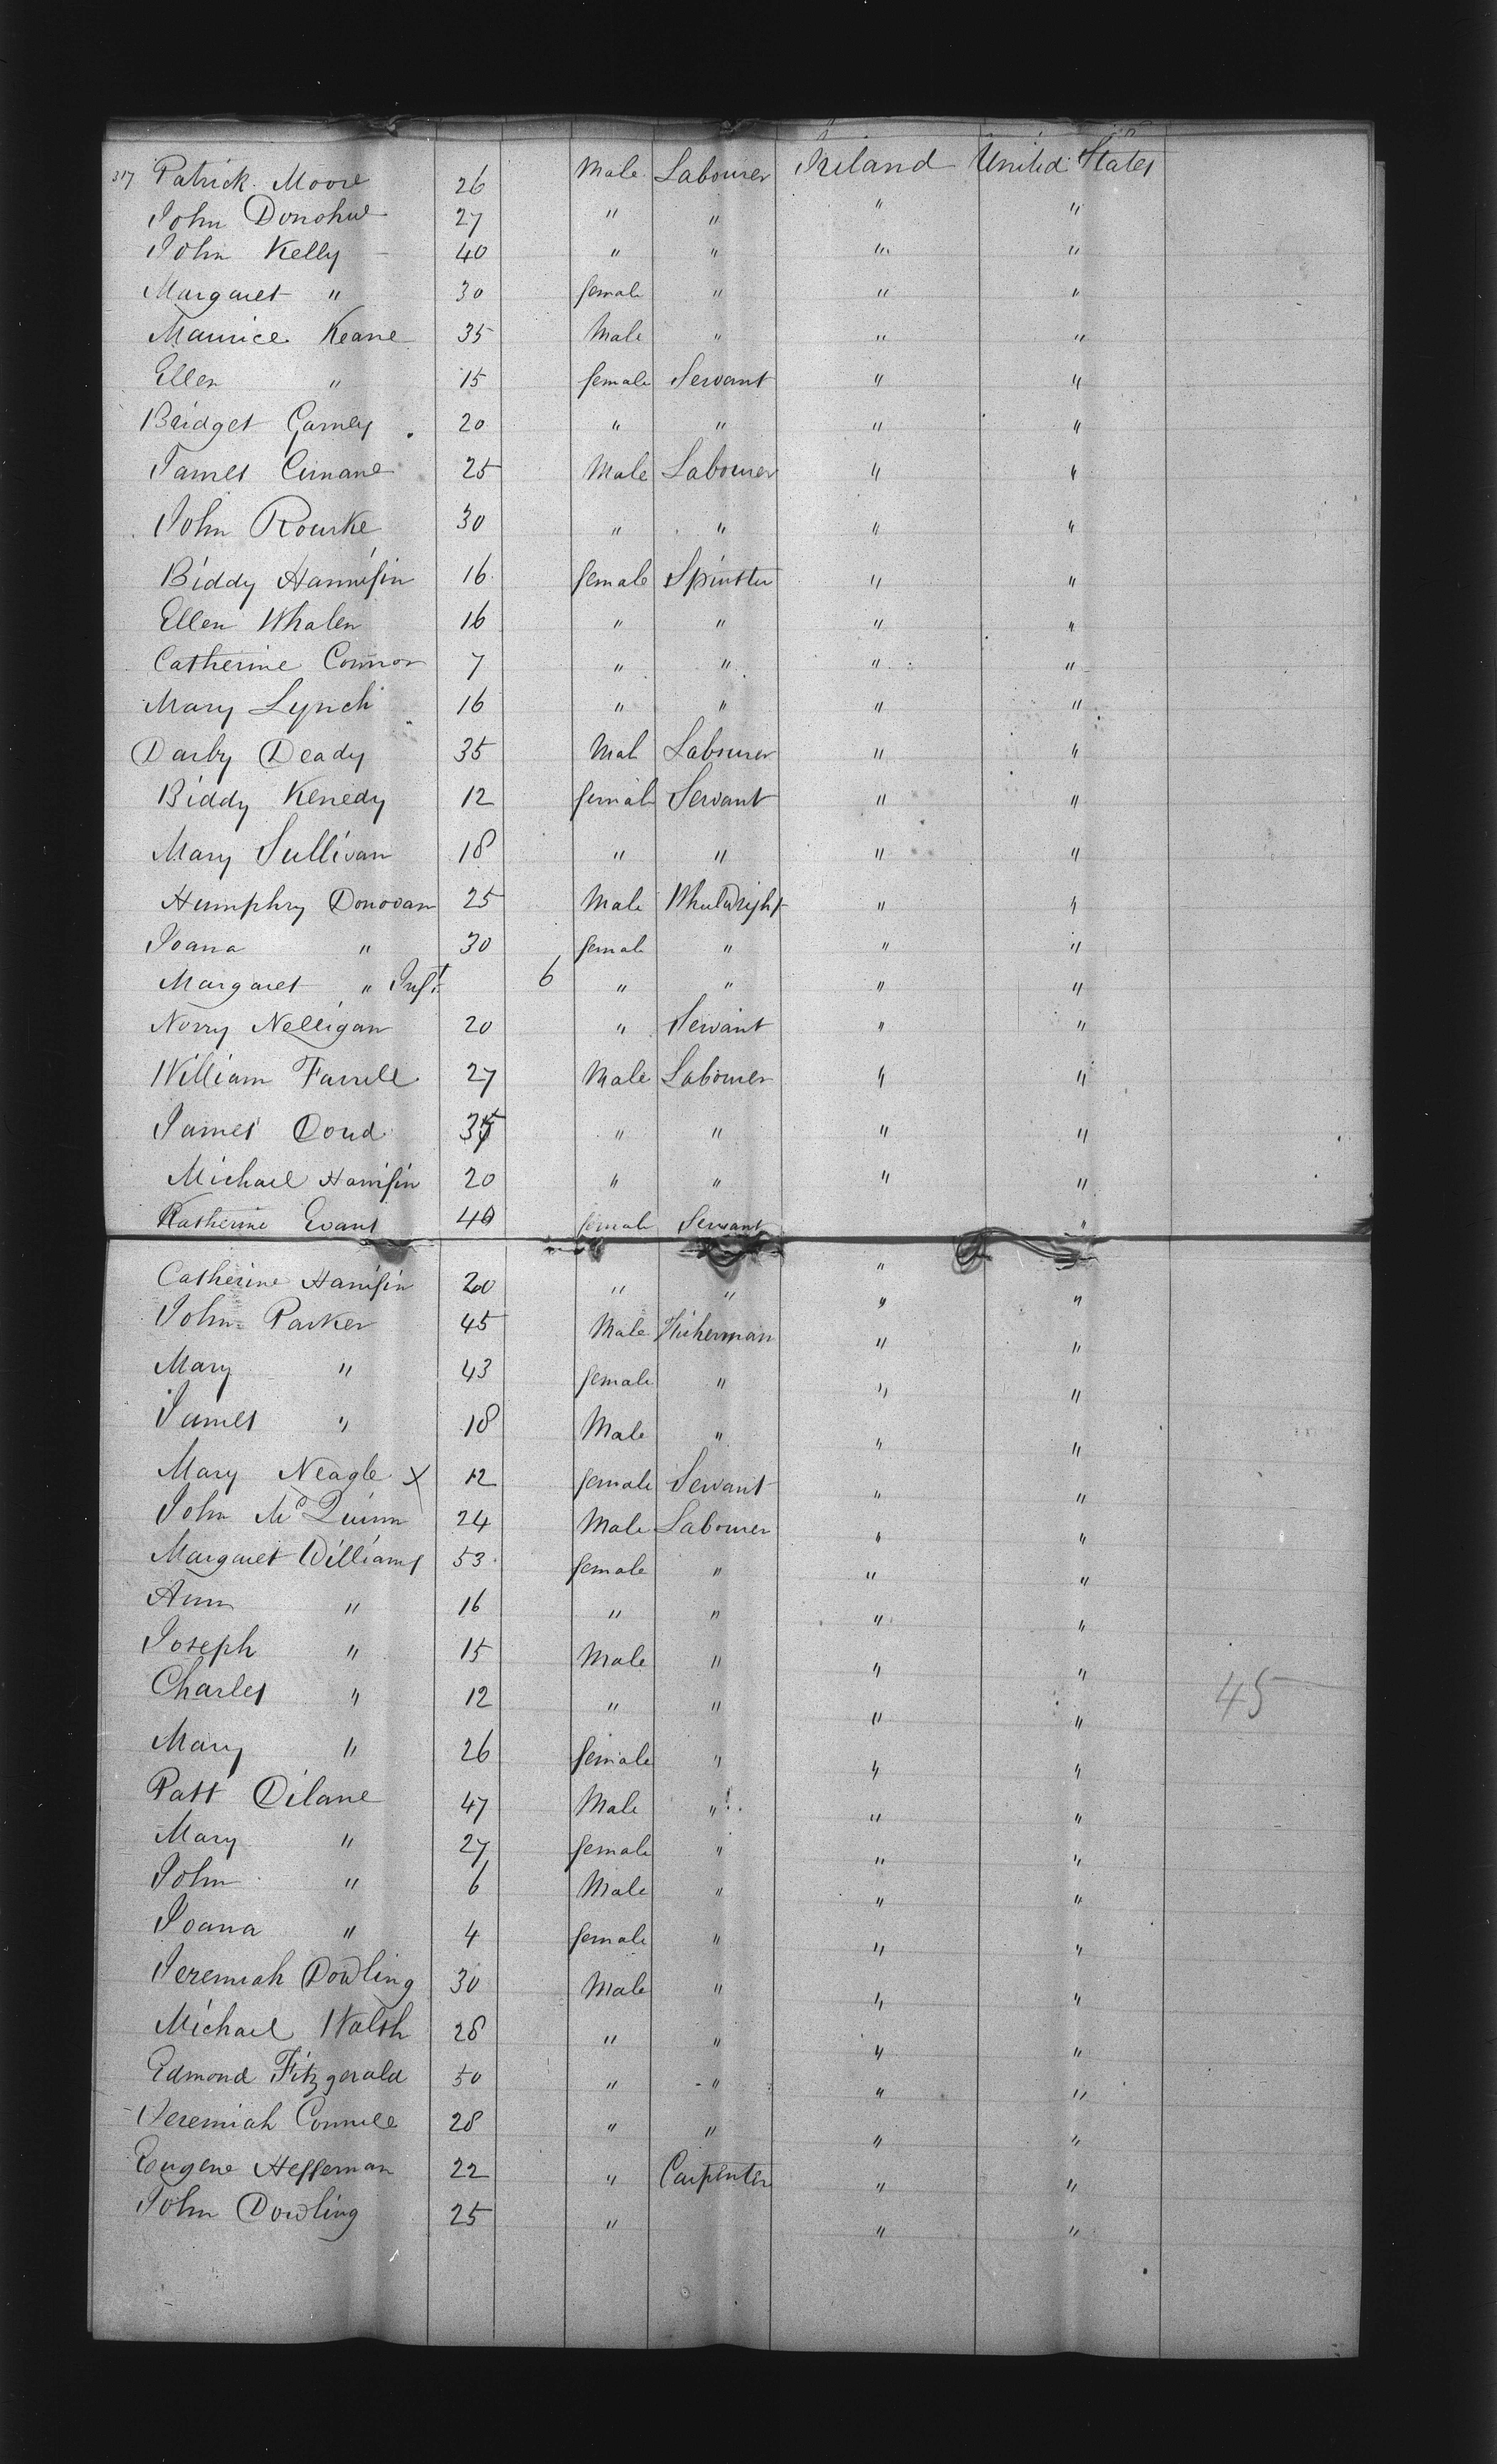 317 Patrick Moore 26 Male Labourer Ireland United States
John Donohue 27 " " " "
John Kelly 40 " " " "
Margaret " 30 female " " "
Maurice Keane 35 Male " " "
Ellen " 15 female Servant " "
Bridget Garney 20 " " " "
James Cunane 25 Male Labourer " "
John Rourke 30 " " " "
Biddy Hannifin 16 female Spinster " "
Ellen Whalen 16 " " " "
Catherine Connor 7 " " " "
Mary Lynch 16 " " " "
Darby Deady 35 Mal Labourer " "
Biddy Kenedy 12 female Servant " "
Mary Sullivan 18 " " " "
Humphry Donovan 25 Male Wheelwright " "
Joana " 30 female " " "
Margaret " Inft 6 " " " "
Norry Nelligan 20 " Servant " "
William Farrell 27 Male Labourer " "
James Doud " " " "
Michael Hanifin 20 " " " "
Katherine Evans 40 female Servant " "
Catherine Hanifin 20 " " " "
John Parker 45 Male Fisherman " "
Mary " 43 female " " "
James " 18 Male " " "
Mary Neagle X 12 female Servant " "
John McQuinn 24 Male Labourer " "
Margaret Williams 53 female " " "
Ann " 16 " " " "
Joseph " 15 Male " " "
Charles " 12 " " " " 45
Mary " 26 female " " "
Patt Dilane 47 Male " " "
Mary " 27 female " " "
John " 6 Male " " "
Joana " 4 female " " "
Jeremiah Dowling 30 Male " " "
Michael Walsh 28 " " " "
Edmond Fitzgerald 50 " " " "
Jeremiah Connell 28 " " " "
Eugene Heffernan 22 " Carpenter " "
John Dowling 25 " " "